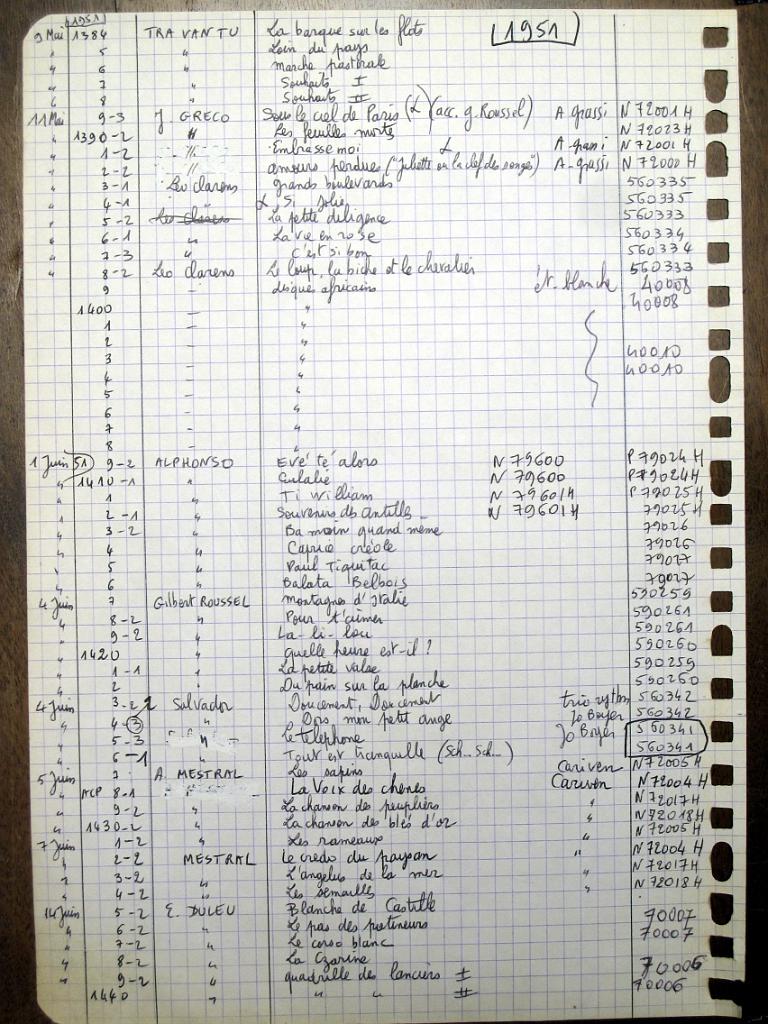 1951
9 Mai 1384 TRA VAN TU La barque sur les flots (1951)
" 5 " Loin du pays
" 6 " marche pastorale
" 7 " Souhaits I
" 8 " Souhaits II
11 Mai 9-3 J. GRECO Sous le ciel de Paris (L) (acc. g. Roussel) A grassi N 72001 H
" 1390-2 " Les feuilles morts N 72023 H
" 1-2 " Embrasse moi L A-grassi N 72001 H
" 2-2 " amours perdues ("Juliette ou la clef des songes") A-grassi N 72000 H
" 3-1 Leo clarens grands boulevards 560335
" 4-1 " L Si jolie 560335
" 5-2 Leo Clarens La petite diligence 560333
" 6-1 " La vie en rose 560334
" 7-3 " C'est si bon 560334
" 8-2 Leo Clarens Le loup, la biche et le chevalier 560333
9 - disques africains ét. blanche 40008
1400 - " 40008
1 - "
2 - "
3 - " 40010
4 - " 40010
5 - "
6 - "
7 - "
8 - "
1 Juin 51 9-2 ALPHONSO Evé té alors N 79600 P 79024 H
" 1410-1 " Eulalie N 79600 P 79024H
" 1 " Ti William N 79601H P 79025H
" 2-1 " Souvenirs des antilles N 79601H 79025H
" 3-2 " Ba moin quand meme 79026
" 4 " Caprice créole 79026
" 5 " Paul Tiquitac 79027
" 6 " Balata Belbois 79027
4 Juin 7 Gilbert ROUSSEL Montagnes d'Italie 590259
" 8-2 " Pour t'aimer 590261
" 9-2 " La-li-lou 590261
" 1420 " quelle heure est-il ? 590260
" 1-1 " La petite valse 590259
" 2 " Du pain sur la planche 590260
4 Juin 3-2 Salvador Doucement, Doucement trio rythm 560342
" 4-3 " Dors, mon petit ange Jo Boyer 560342
" 5-3 " Le telephone Jo Boyer 560341
" 6-1 Tout est tranquille (Sch... Sch...) 560341
5 Juin 7 A. MESTRAL Les sapins Cariven N72005H
" ACP 8-1 La Voix des chênes Cariven N72004 H
" 9-2 " La chanson des peupliers " N72017H
" 1430-2 " La chanson des blés d'or " N72018H
7 Juin 1-2 " Les rameaux " N72005H
" 2-2 MESTRAL Le credo du paysan " N72004 H
" 3-2 " L'angelus de la mer " N72017H
" 4-2 " Les semailles " N72018 H
14 Juin 5-2 E. DULEU Blanche de Castille
" 6-2 " Le pas des patineurs 70007
" 7-2 " Le corso blanc 70007
" 8-2 " La Czarine
" 9-2 " quadrille des lanciers I 70006
1440 " " " II 70006